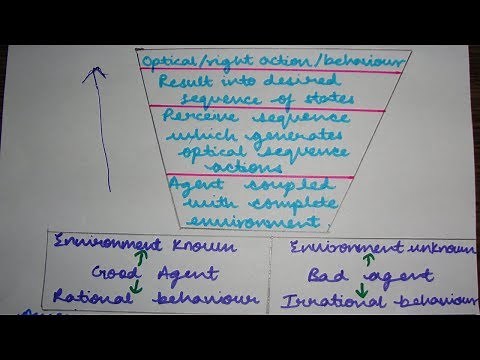 Optical/right action/behaviour
Result into desired
sequence of states
Perceive sequence
which generates
optical sequence
actions
Agent coupled
with complete
environment
Environment Known
Good Agent
Rational behaviour
Environment unknown
Bad agent
Irrational behaviour